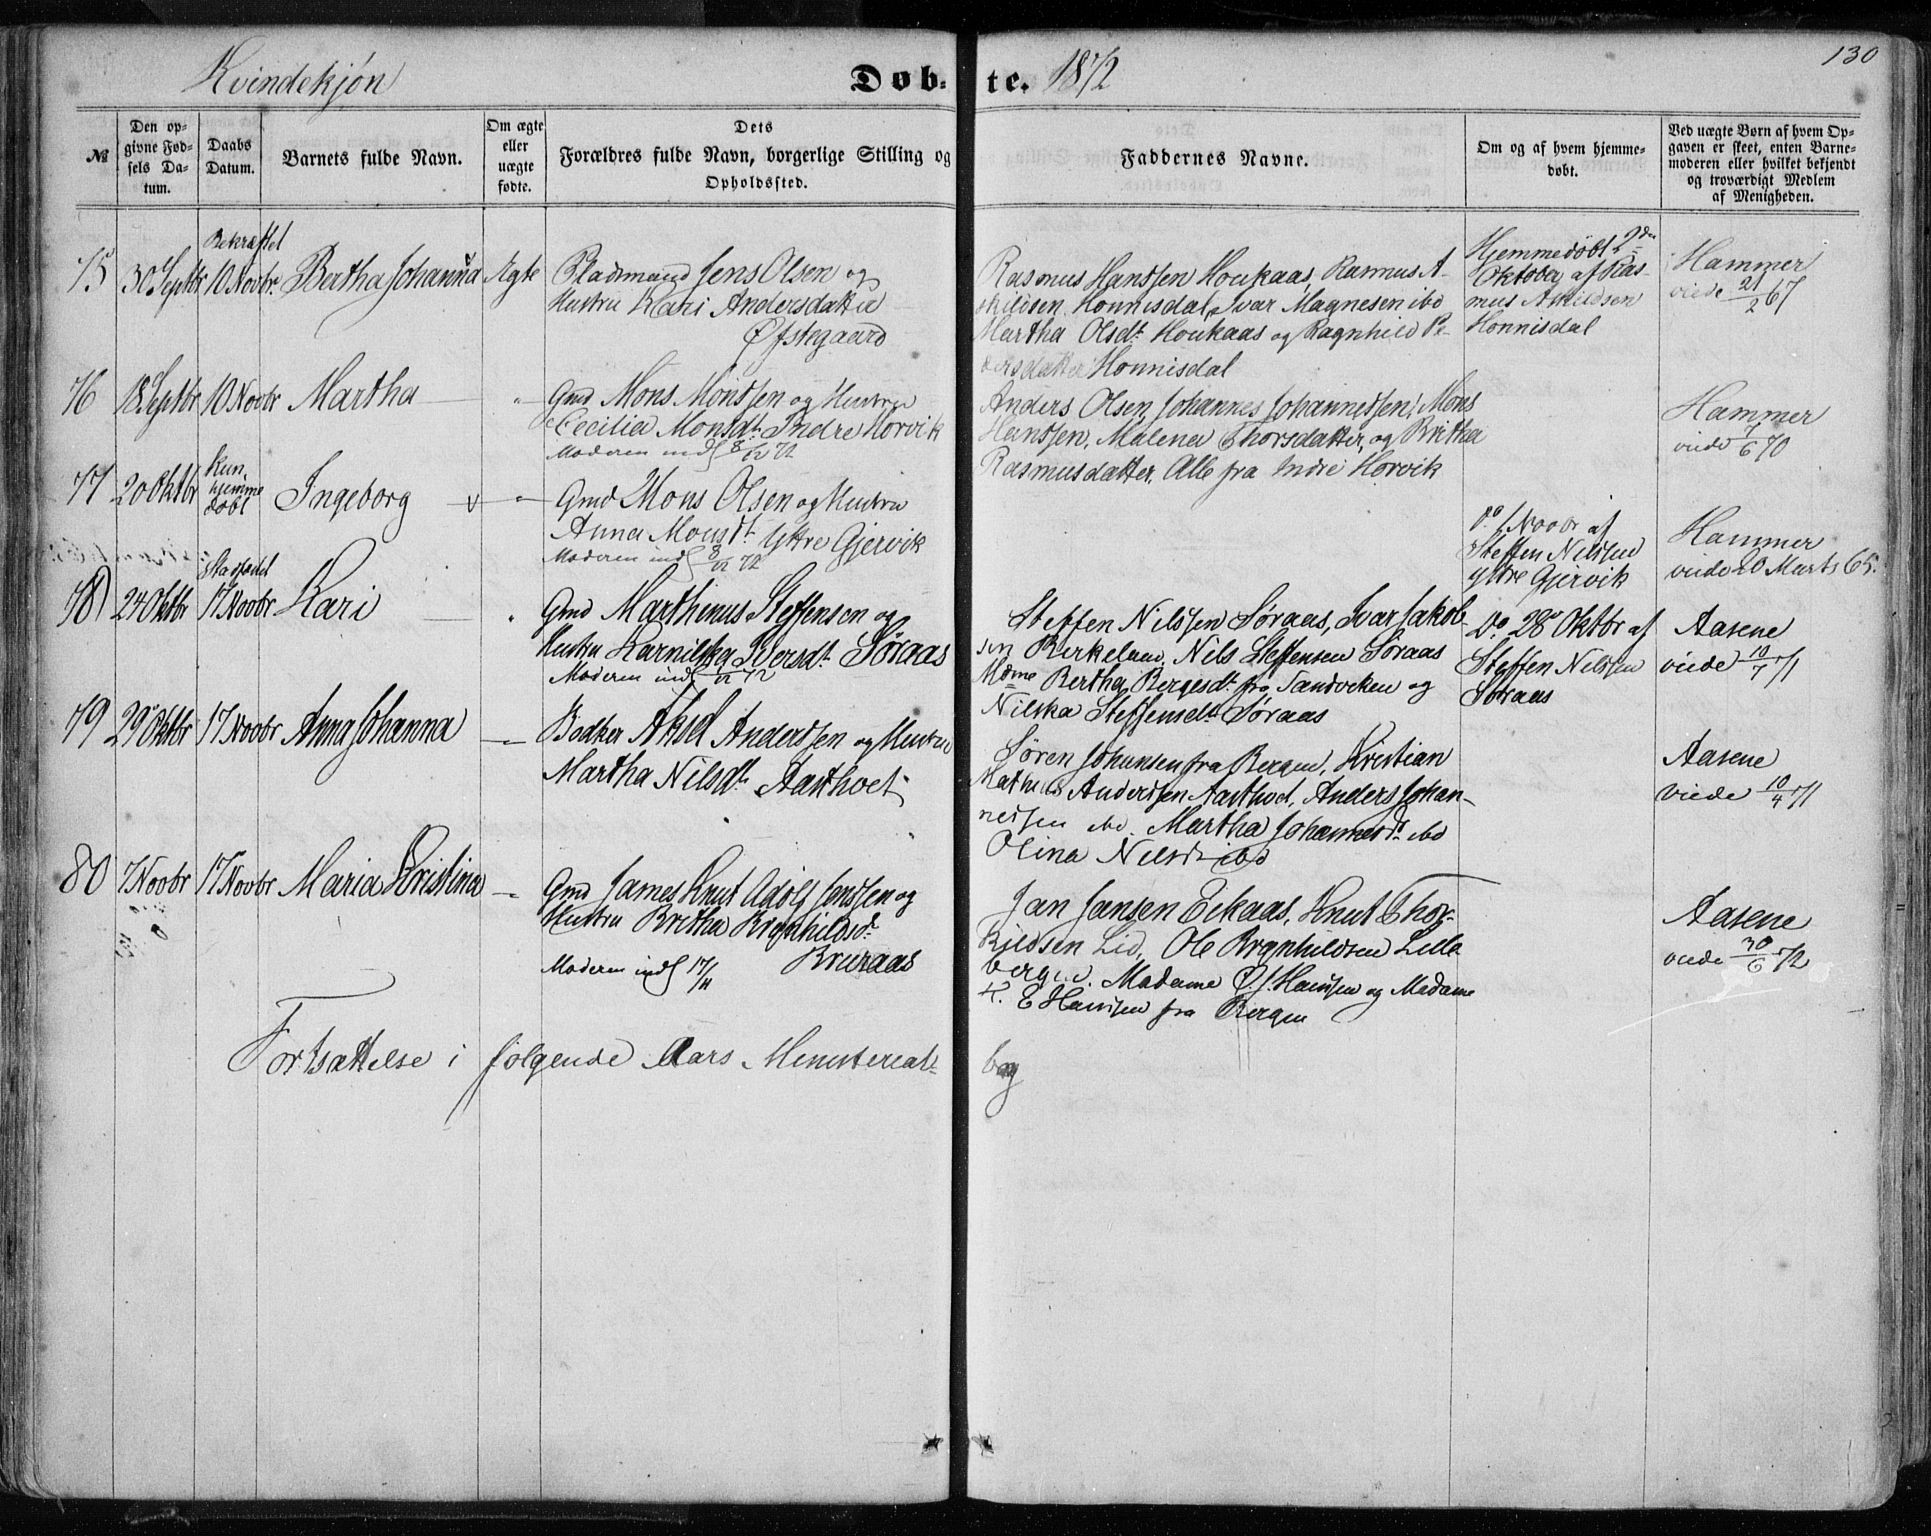 130
Kvindekjøn
Døb-te. 1872
№
Den opgivne Fødsels Datum.
Daabs Datum.
Barnets fulde Navn.
Om ægte eller uægte fødte.
Dets Forældres fulde Navn, borgerlige Stilling og Opholdssted.
Faddernes Navne.
Om og af hvem hjemmedøbt.
Ved uægte Børn af hvem Opgaven er skeet, enten Barnemoderen eller hvilket bekjendt og troværdigt Medlem af Menigheden.
75
30 Septbr
Bekræftet
10 Novbr.
Bertha Johanna
Ægte
Pladsmand Jens Olsen og
Hustru Kari Andersdatter
Øfstegaard
Rasmus Hanssen Houkaas, Rasmus A-
skildsen Honnisdal, Ivar Magnesen ibd
Martha Olsdt Houkaas og Ragnhild Pe-
dersdatter Honnisdal
Hjemmedøbt 2den
Oktober af Ras-
mus Askildsen
Honnisdal
Hammer
viede 21/2 67
76
18 Septbr
10 Novbr
Martha
"
Gmd Mons Monssen og Hustru
Cecilia Monsdt. Indre Horvik
Moderen indl 8/12 72
Anders Olsen, Johannes Johannessen, Mons
Hanssen, Malena Thorsdatter, og Britha
Rasmusdatter. Alle fra Indre Horvik
Hammer
viede /6 70
77
20 Oktbr
Kun
hjemme
døbt
Ingeborg
"
Gmd Mons Olsen og Hustru
Anna Monsdt. Yttre Gjervik
Moderen indl 8/12 72
do. 1 Novbr af
Steffen Nilssen
ytre Gjervik
Hammer
viede 20 Marts 65.
78
24 Oktbr
Stadfæstet
17 Novbr
Kari
"
Gmd Marthinus Steffensen og
Hustru Karnilska Iversdt. Søraas
Moderen indl /12 72
Steffen Nilssen Søraas, Ivar Jakob-
sen Birkeland, Nils Steffensen Søraas
Mdme Bertha Bergesdt. fra Sandviken og
Nilska Steffensdt. Søraas
Do. 28 Oktbr af
Steffen Nilssen
Søraas
Aasene
viede 10/7 71
79
29 Oktbr
17 Novbr
Anna Johanna
Bødker Aksel Anderssen og Hustru
Martha Nilsdt. Aasthvet
Søren Johansen fra Bergen, Kristian
Mathias Anderssen Aasthvet, Anders Johan-
nessen ibd. Martha Johannesdt. ibd
Olina Nilsdt ibd
Aasene
viede 10/4 71
80
7 Novbr
17 Novbr
Maria Kristina
Gmd James Knut Adolf Jenssen og
Hustru Britha Brynhildsdt.
Bruraas
Moderen indl 17/11
Jan Jansen Eikaas, Knut Thor-
kildsen Lid, Ole Brynhildsen Lille
bergen. Madame O. J. Hanssen og Madame
K. E Hanssen fra Bergen
Aasene
viede 30/6 72
Fortsættelse i følgende Aars Ministerial-
bog